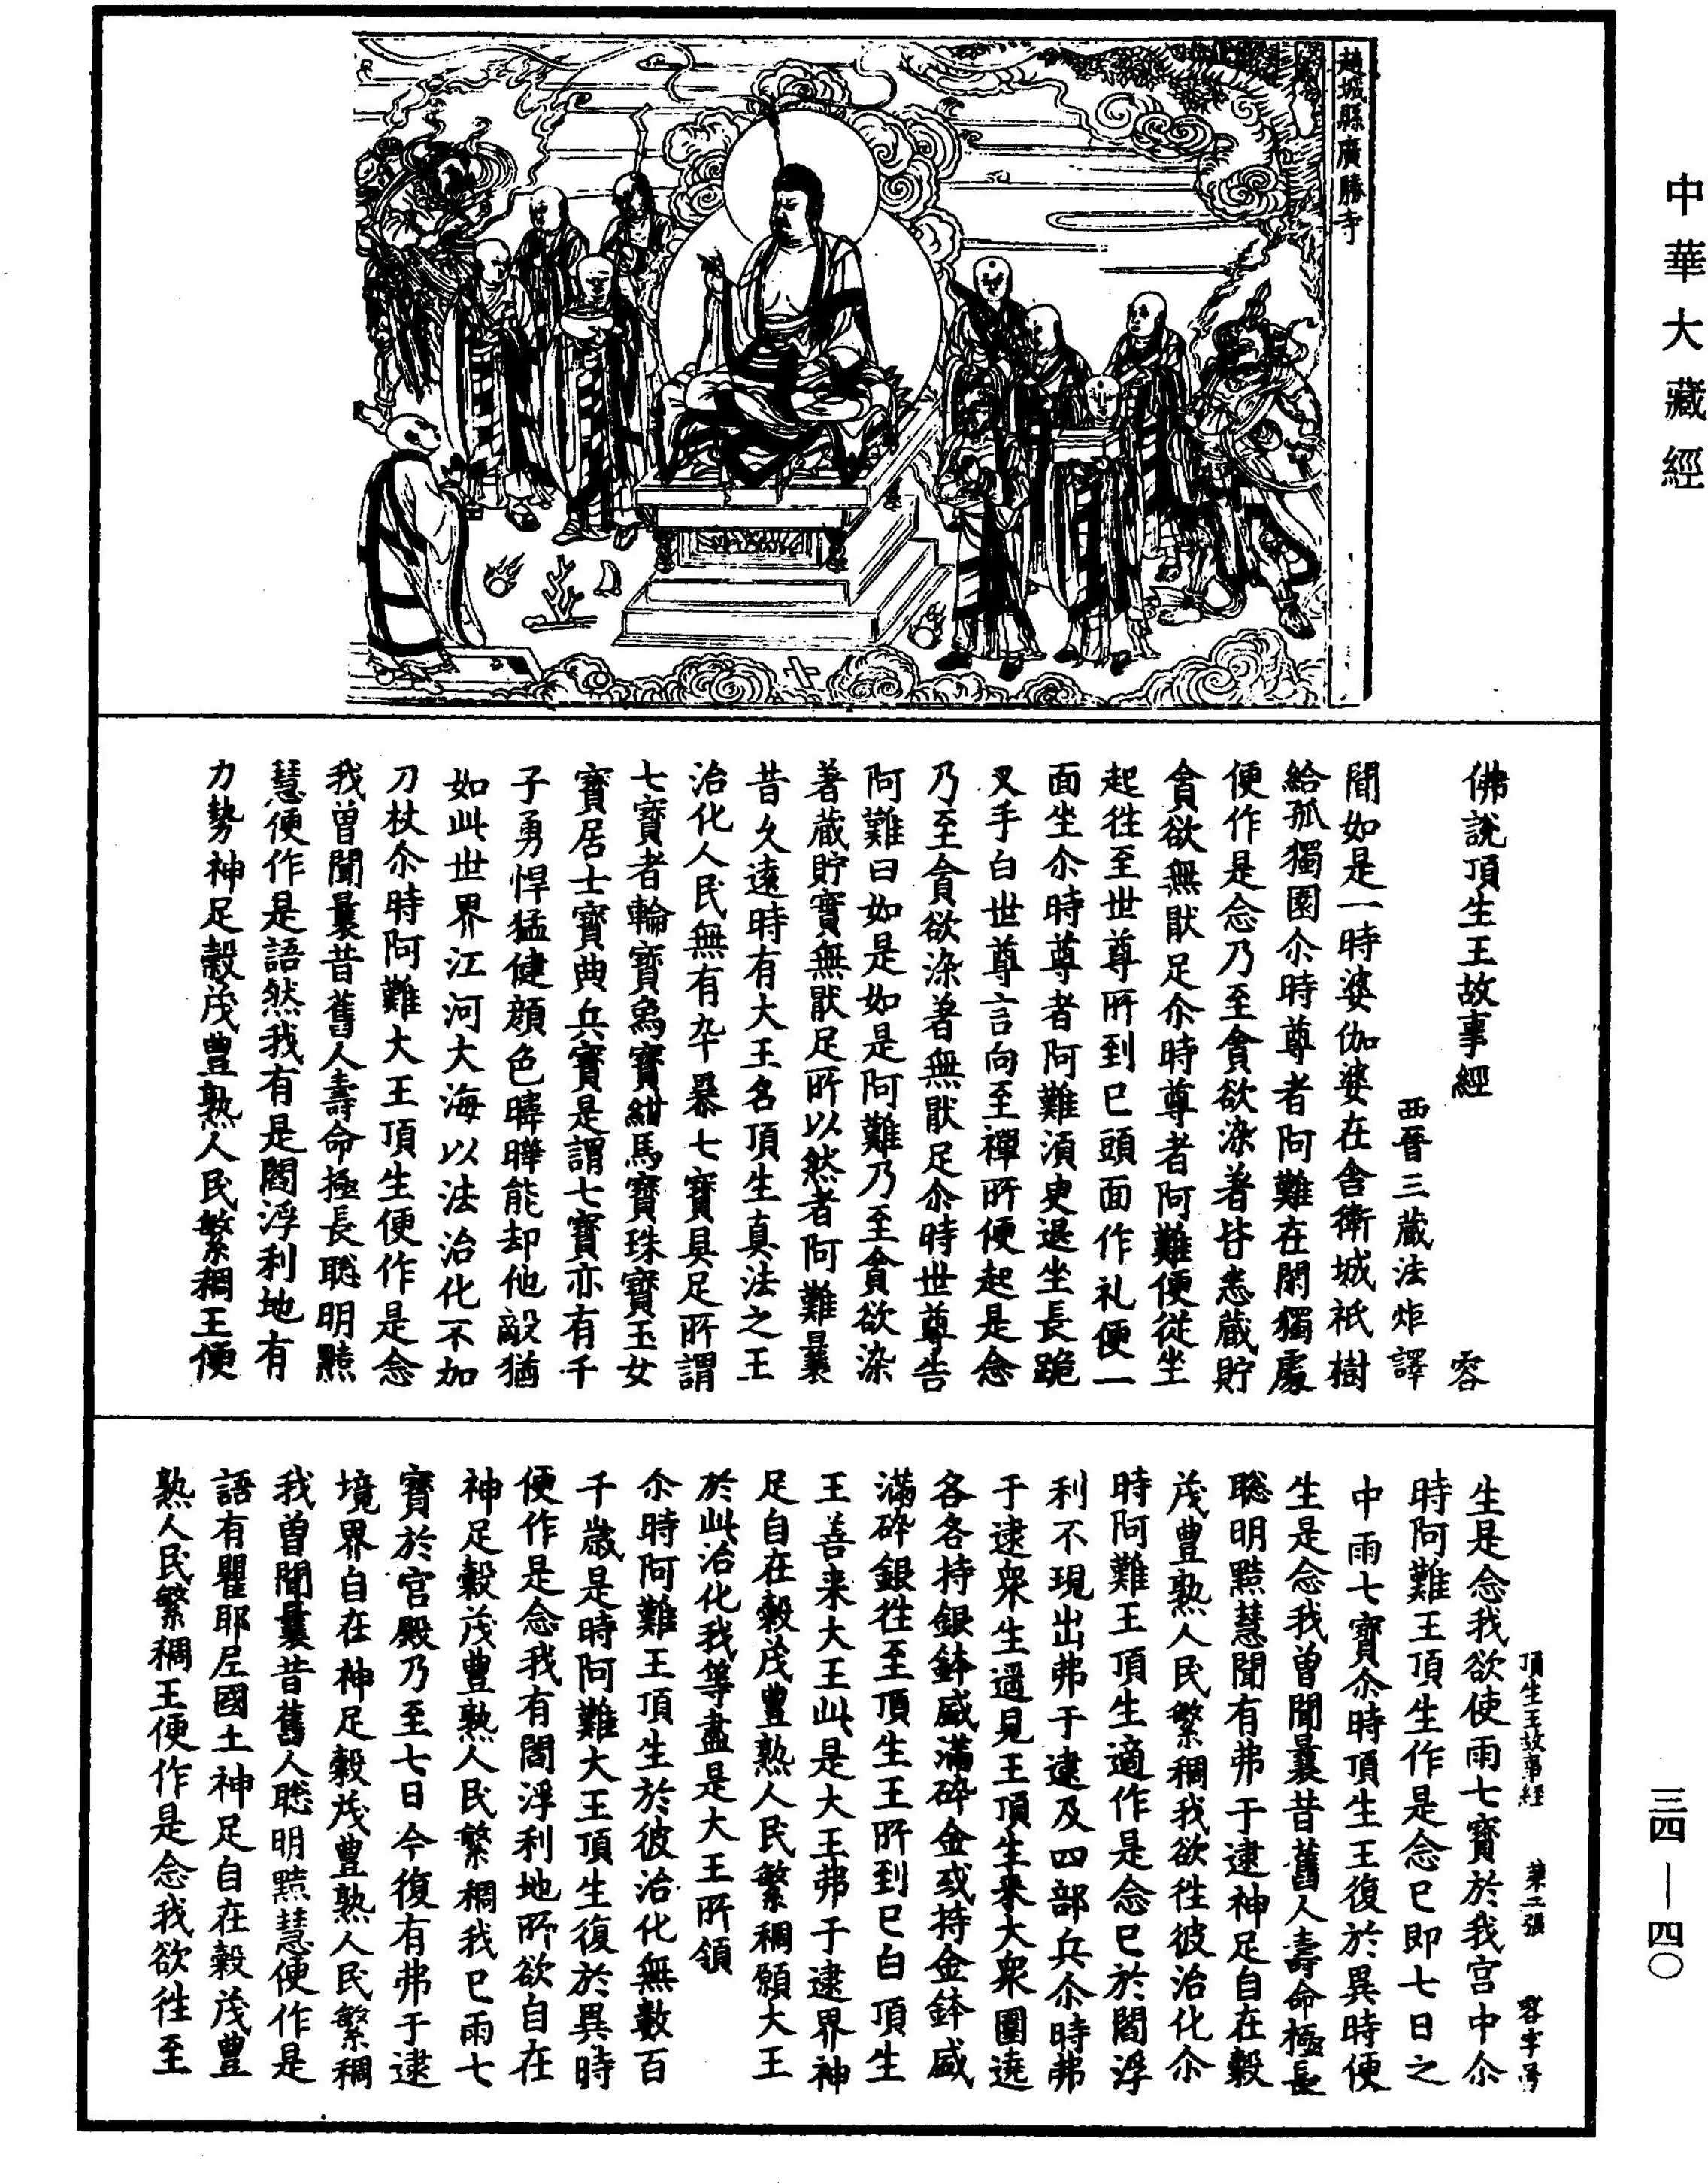 中華大藏經
三四—四〇
趙城縣廣勝寺
佛說頂生王故事經　容
西晉三藏法炬譯
聞如是一時婆伽婆在舍衛城祇樹
給孤獨園尒時尊者阿難在閑獨處
便作是念乃至貪欲染著皆悉藏貯
貪欲無猒足尒時尊者阿難便從坐
起往至世尊所到已頭面作礼便一
面坐尒時尊者阿難須臾退坐長跪
叉手白世尊言向至禪所便起是念
乃至貪欲染著無猒足尒時世尊告
阿難曰如是如是阿難乃至貪欲染
著藏貯實無猒足所以然者阿難曩
昔久遠時有大王名頂生真法之王
治化人民無有卒暴七寶具足所謂
七寶者輪寶象寶紺馬寶珠寶玉女
寶居士寶典兵寶是謂七寶亦有千
子勇悍猛健顏色暐曄能却他敵猶
如此世界江河大海以法治化不加
刀杖尒時阿難大王頂生便作是念
我曾聞曩昔舊人壽命極長聡明黠
慧便作是語然我有是閻浮利地有
力勢神足穀茂豊熟人民繁稠王便
頂生王故事經　第二張　容字号
生是念我欲使雨七寶於我宮中尒
時阿難王頂生作是念已即七日之
中雨七寶尒時頂生王復於異時便
生是念我曾聞曩昔舊人壽命極長
聡明黠慧聞有弗于逮神足自在穀
茂豊熟人民繁稠我欲往彼治化尒
時阿難王頂生適作是念已於閻浮
利不現出弗于逮及四部兵尒時弗
于逮衆生遥見王頂生来大衆圍遶
各各持銀鉢盛滿碎金或持金鉢盛
滿碎銀往至頂生王所到已白頂生
王善来大王此是大王弗于逮界神
足自在穀茂豊熟人民繁稠願大王
於此治化我等盡是大王所領
尒時阿難王頂生於彼治化無數百
千歲是時阿難大王頂生復於異時
便作是念我有閻浮利地所欲自在
神足穀茂豊熟人民繁稠我已雨七
寶於宮殿乃至七日今復有弗于逮
境界自在神足穀茂豊熟人民繁稠
我曽聞曩昔舊人聡明黠慧便作是
語有瞿耶尼國土神足自在穀茂豊
熟人民繁稠王便作是念我欲往至